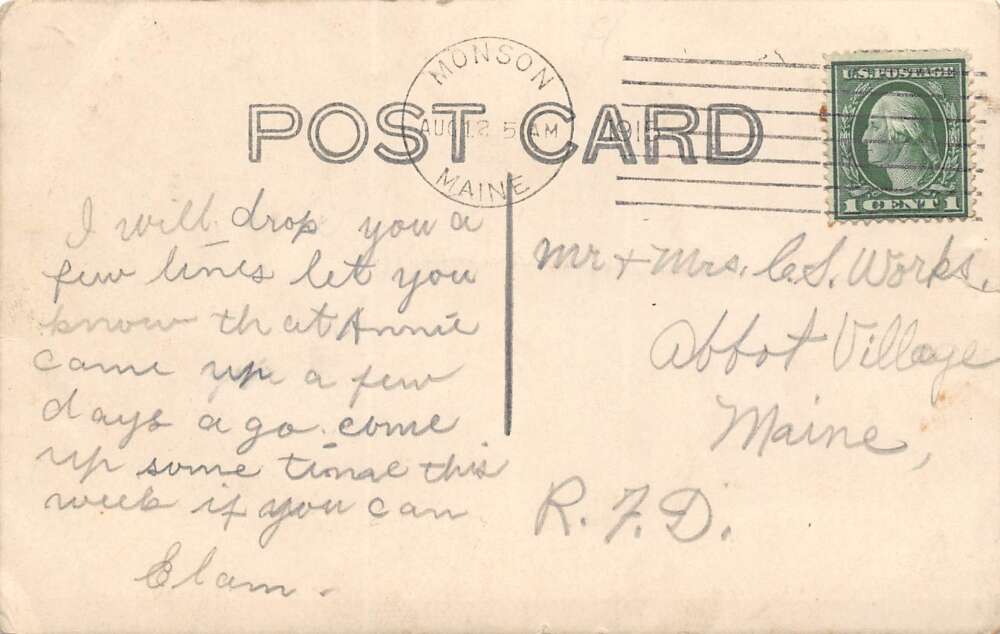 MONSON
AUG 12 5 AM 1915
MAINE
U.S. POSTAGE
1 CENT 1
POST CARD
I will drop you a
few lines let you
know that Annie
came up a few
days a go come
up some time this
week if you can
Elam.
Mr + Mrs. C.S. Works,
Abbot Village
Maine,
R.F.D.